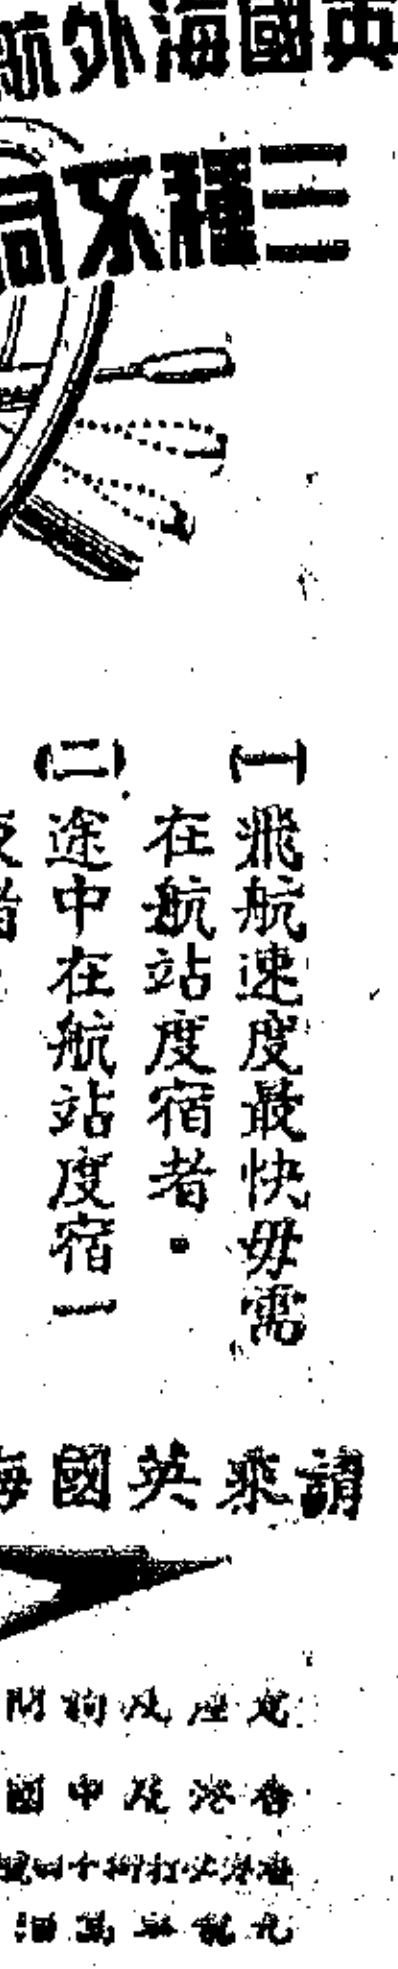 英國海外航
三種不同
(一)飛航速度最快毋需
在航站度宿者。
(二)途中在航站度宿一
請乘英國海
定座及詢問
香港及中國
香港必打街十四號
九龍